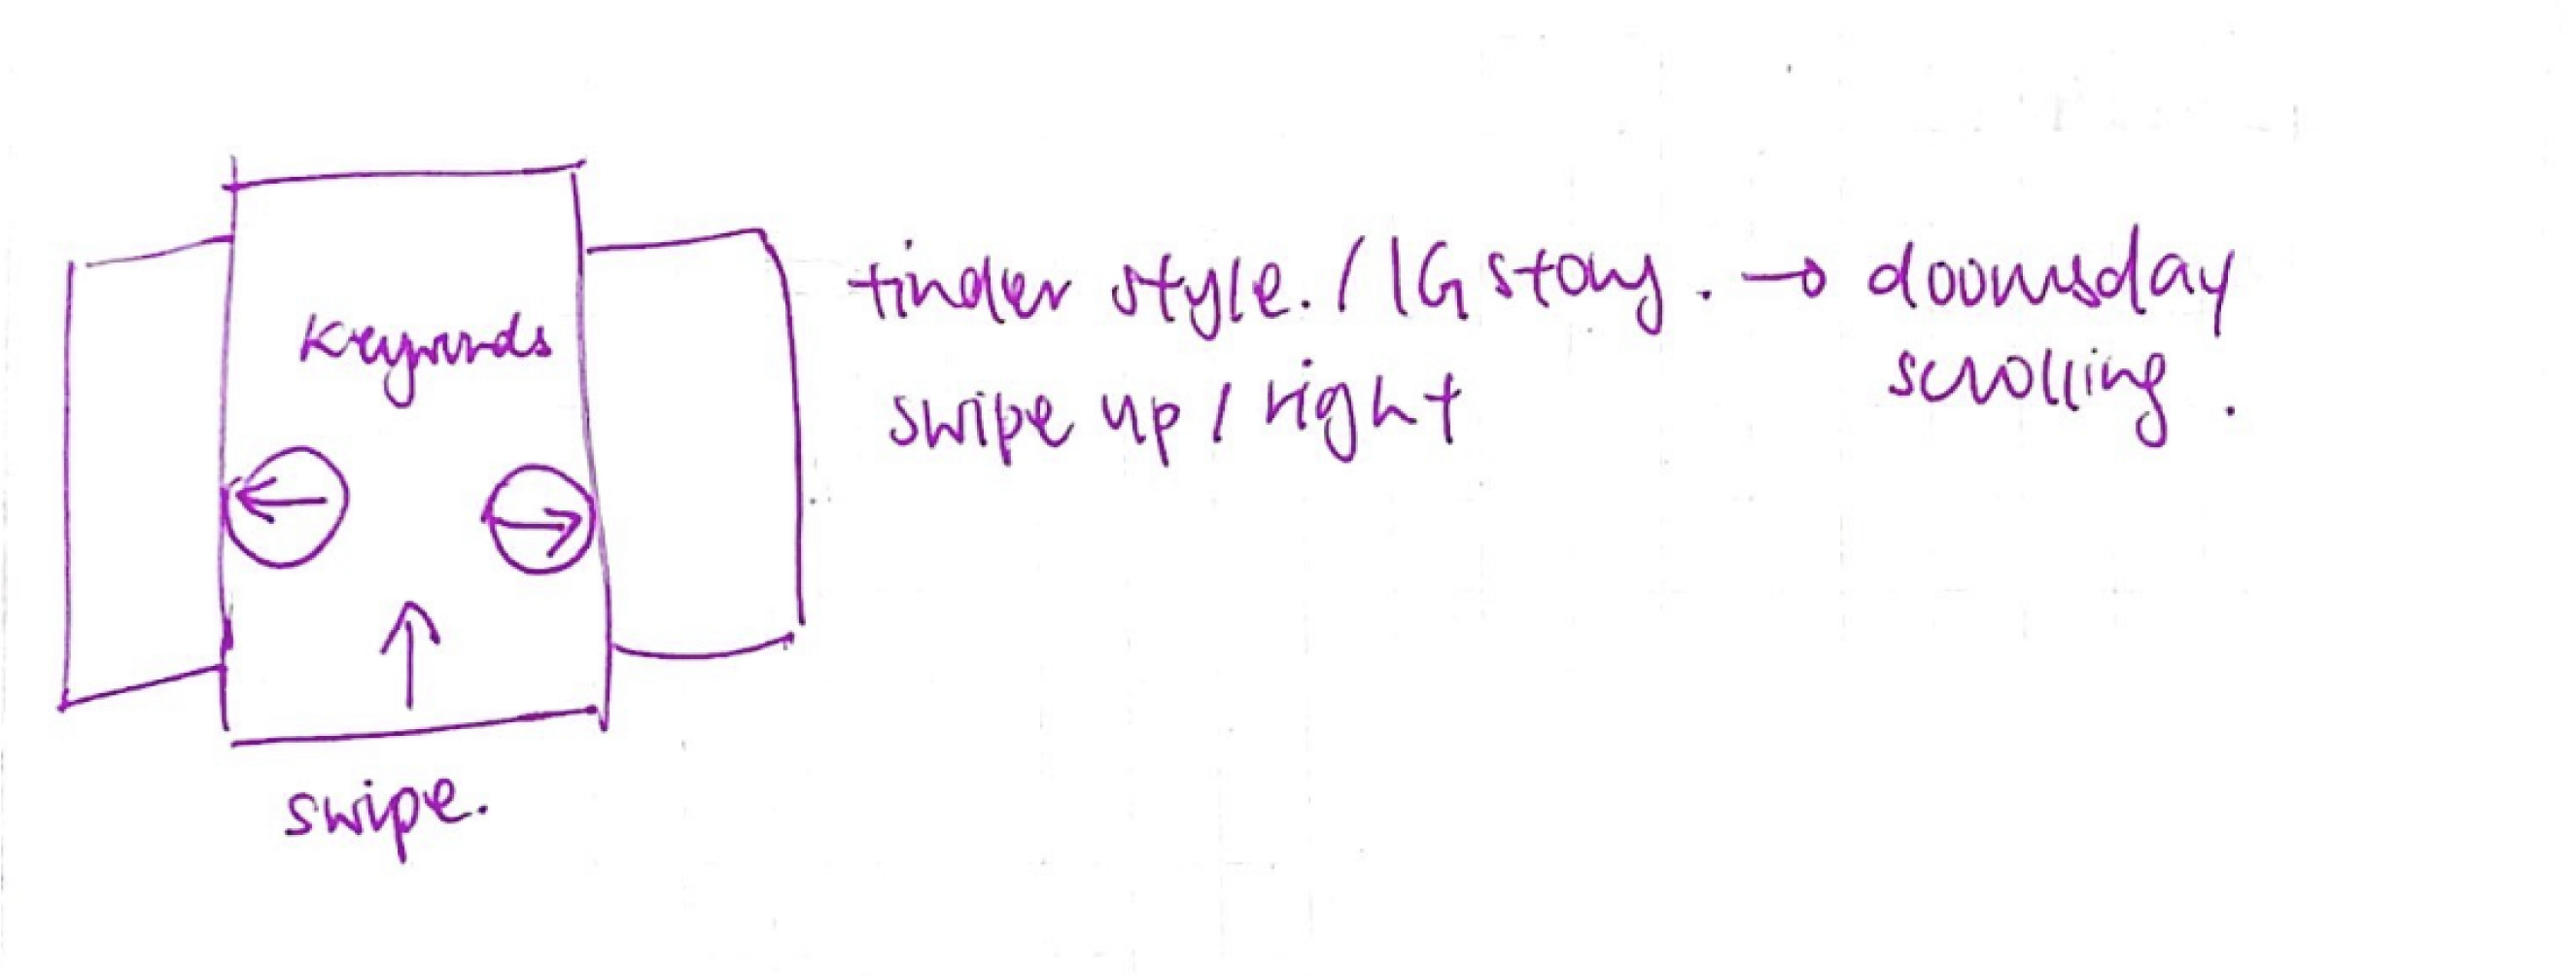 keywords
tinder style. / IG story. → doomsday
scrolling.
swipe up / right
swipe.